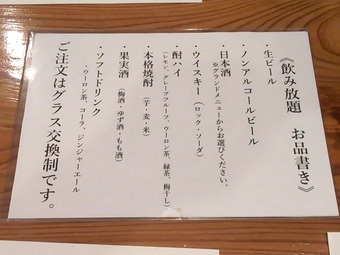 《飲み放題 お品書き》
・生ビール
・ノンアルコールビール
・日本酒
※グランドメニューからお選びください。
・ウイスキー（ロック・ソーダ）
・酎ハイ
（レモン、グレープフルーツ、ウーロン茶、緑茶、梅干し）
・本格焼酎（芋・麦・米）
・果実酒（梅酒・ゆず酒・もも酒）
・ソフトドリンク
・ウーロン茶、コーラ、ジンジャーエール
ご注文はグラス交換制です。